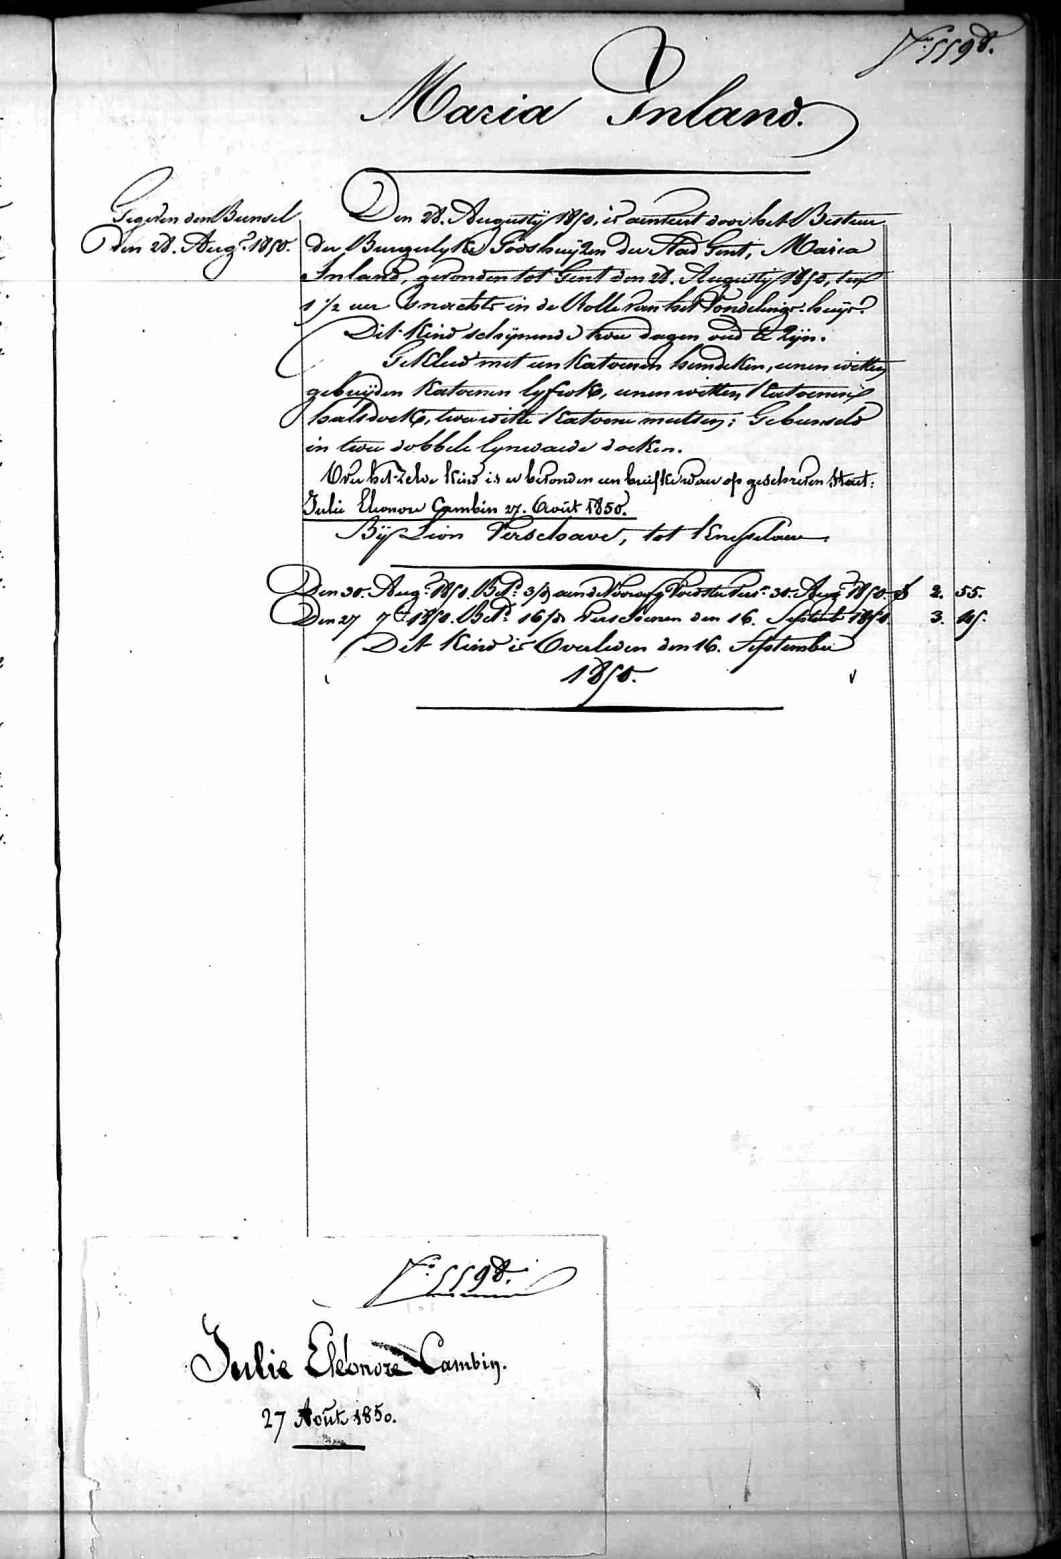 N.º 5598.
Maria Inland.
Gegeven den Bunsel
den 28. Aug.t 1850.
Den 28. Augustij 1850, is aenveert door het Bestuer
der Burgerlyke Godshuijzen der Stad Gent, Maria
Inland, gevonden tot Gent den 28. Augustij 1850, ten
1 1/2 uer 's nachts in de Rolle van het Vondelings-huijs.
Dit kind schijnende twee dagen oud te zijn.
Gekleed met een katoenen hemdeken, eenen witten
gebreijden katoenen lyfrok, eenen witten katoenen
halsdoek, twee witte katoene mutsen; Gebunseld
in twee dobbele lynwaede doeken.
Over het-zelve kind is er bevonden een briefke waer op geschreven staet:
Julie Eleonore Cambin 27. Août 1850.
Bij Lion Verschave, tot Knesselaere.
Den 30. Aug.t 1850. Bet.d 3/d aen de Voorzorg Voedster 30. Aug.t 1850. f 2. 55.
Den 27 7.b 1850. Bet.d 16/d verschenen den 16. Septemb 1850. 3. 45.
Dit Kind is Overleden den 16. September
1850.
N.º 5598.
Julie Eléonore Cambin.
27 Août 1850.